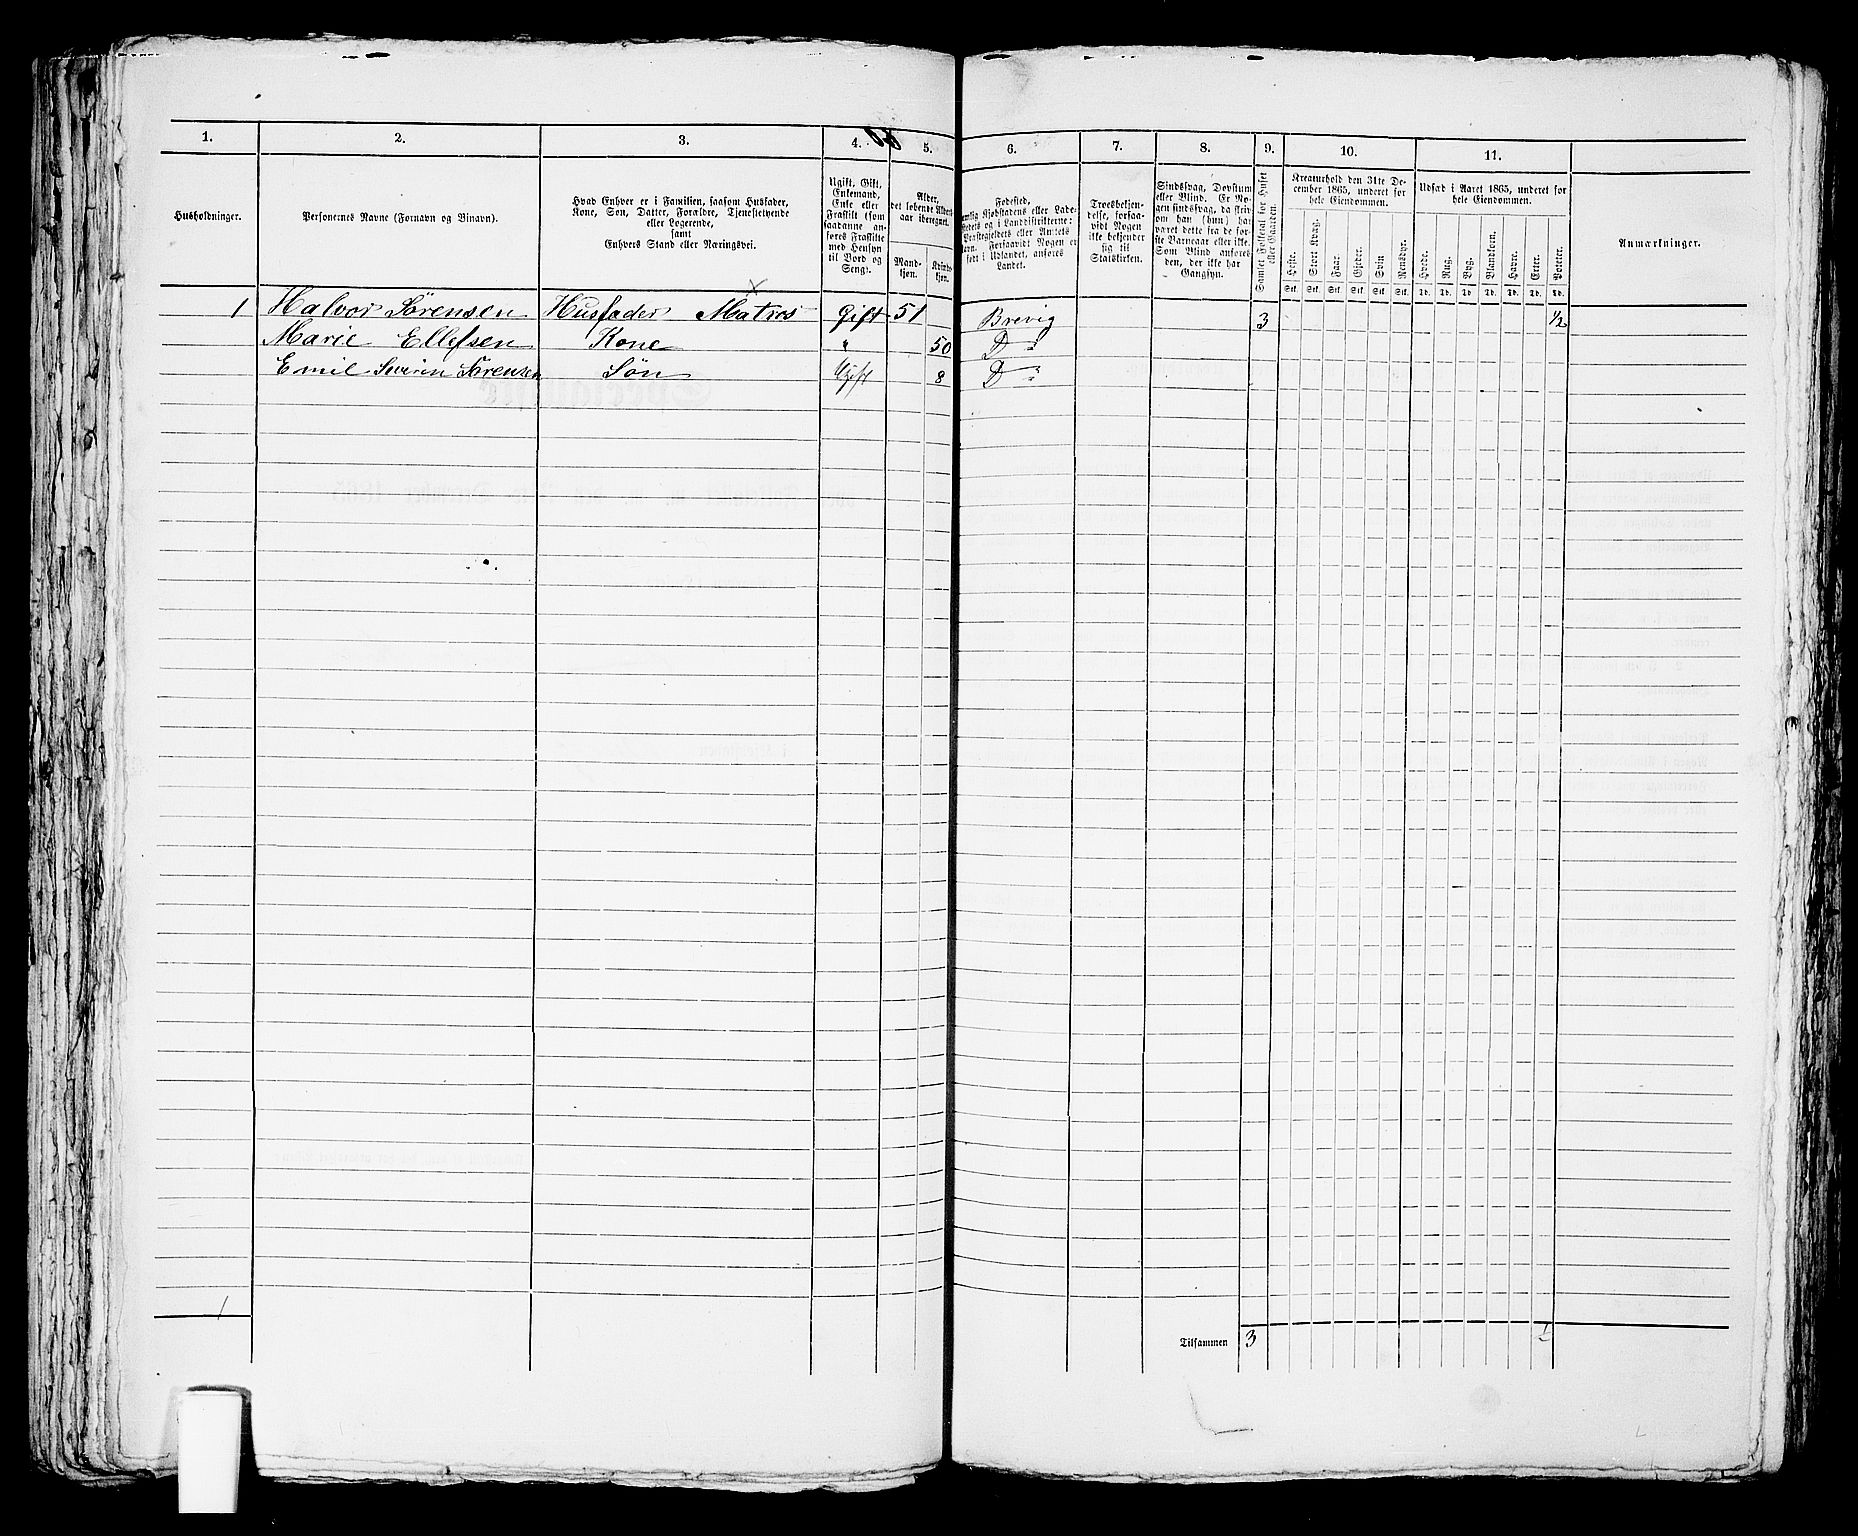 1. 2. 3. 4. 5. 6. 7. 8. 9. 10. 11.
Husholdninger.
Personernes Navne (Fornavn og Binavn).
Hvad Enhver er i Familien, saasom Husfader,
Kone, Søn, Datter, Forældre, Tjenestetyende
eller Logerende,
samt
Enhvers Stand eller Næringsvei.
Ugift, Gift,
Enkemand,
Enke eller
Fraskilt (som
saadanne an-
føres Fraskilte
med Hensyn
til Bord og
Seng).
Alder,
det løbende Alders-
aar iberegnet.
Mand-
kjøn.
Kvinde-
kjøn.
Fødested,
Troesbekjen-
delse, forsaa-
vidt Nogen
ikke bekjender
sig
til
Statskirken.
Sindssvag, Døvstum
eller Blind. Er No-
gen sindssvag, da skriv
om han (hun) har
været dette fra de før-
ste Barneaar eller ikke.
Som Blind anføres
den, der ikke har
Gangsyn.
Samlet Folketal for Huset
eller Gaarden.
Kreaturhold den 31te De-
cember 1865, underet for
hele Eiendommen.
Heste. Stort Kvæg. Faar. Gjeder. Svin Rensdyr.
Stk. Stk. Stk. Stk. Stk. Stk.
Udsæd i Aaret 1865, underet for
hele Eiendommen.
Hvede. Rug. Byg. Blandkorn. Havre. Erter. Poteter.
Td. Td. Td. Td. Td. Td. Td.
Anmærkninger.
1 Halvor Sørensen Husfader Matros Gift 51 Brevig 3 1/2
Marie Ellefsen Kone " 50 Do
Emil Severin Sørensen Søn Ugift 8 Do
1
Tilsammen 3 1/2